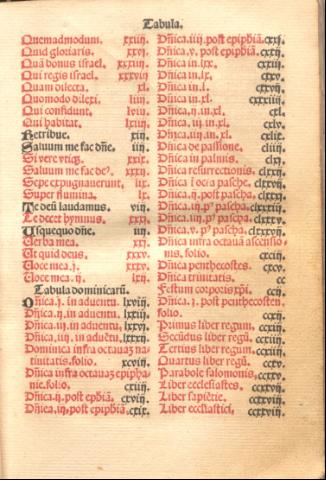 Tabula.
Quemadmodum. xxiij.
Quid gloriaris. xxv.
Quā bonus israel. xxxiij.
Qui regis israel. xxxvij
Quam dilecta. xl.
Quomodo dilexi. liiij.
Qui confidunt. lviij.
Qui habitat. lxiij.
Retribue. xij.
Saluum me fac dñe. iij.
Si vere vtiqz. xxix.
Saluum me fac de9. xxxj.
Sepe expugnauerunt. lx.
Super flumina. lx.
Te deū laudamus. viij.
Te decet hymnus. xxx.
Usquequo dñe. iij.
Uerba mea. xxj.
Ut quid deus. xxxv.
Uoce mea .j. xxxv.
Uoce mea .ij. lxij.
Tabula dominicarū.
Dñica .j. in aduentu. lxviij.
Dñica .ij. in aduentu. lxxiij.
Dñica .iij. in aduētu. lxxv.
Dñica .iiij. in aduētu.
Dominica infra octauaz na-
tiuitatis. folio. xcviij.
Dñica infra octauaz epipha-
nie. folio. cxiij.
Dñica .ij. post epħiā. cxvij.
Dñica .iij. post epiphiā. cxix.
Dñica .iiij. post epiphiā. cxxj.
Dñica .v. post epiphiā. cxxij.
Dñica in .lxx. cxxiij.
Dñica in .lx. cxxv.
Dñica in .l. cxxvij.
Dñica in .xl. cxxxiiij.
Dñica .ij. in .xl. cxl.
Dñica .iij. in .xl. cxlv.
Dñica .iiij. in .xl. cxlix.
Dñica de passione. cliij.
Dñica in palmis. clxj.
Dñica resurrectionis. clxxj.
Dñica ī octa pasche. clxxvj.
Dñica .ij. post pascha. clxxx.
Dñica .iij. pꝰ pascha. clxxxij.
Dñica .iiij. pꝰ pascha. clxxxv.
Dñica .v. pꝰ pascha. clxxxvij.
Dñica infra octauā ascensio-
nis. folio. cxciij.
Dñica penthecostes. cxcv.
Dñica trinitatis. cc
Festum corporis xp̄i. ccij.
Dñica .j. post penthecosten
folio. ccxij.
Primus liber regum. ccxiij.
Secūdus liber regū. ccxiij.
Tertius liber regum. ccxiij.
Quartus liber regū. ccxv.
Parabole salomonis. ccxxv.
Liber ecclesiastes. ccxxvij.
Liber sapiētie. ccxxvij.
Liber ecclīastici. ccxxviij.